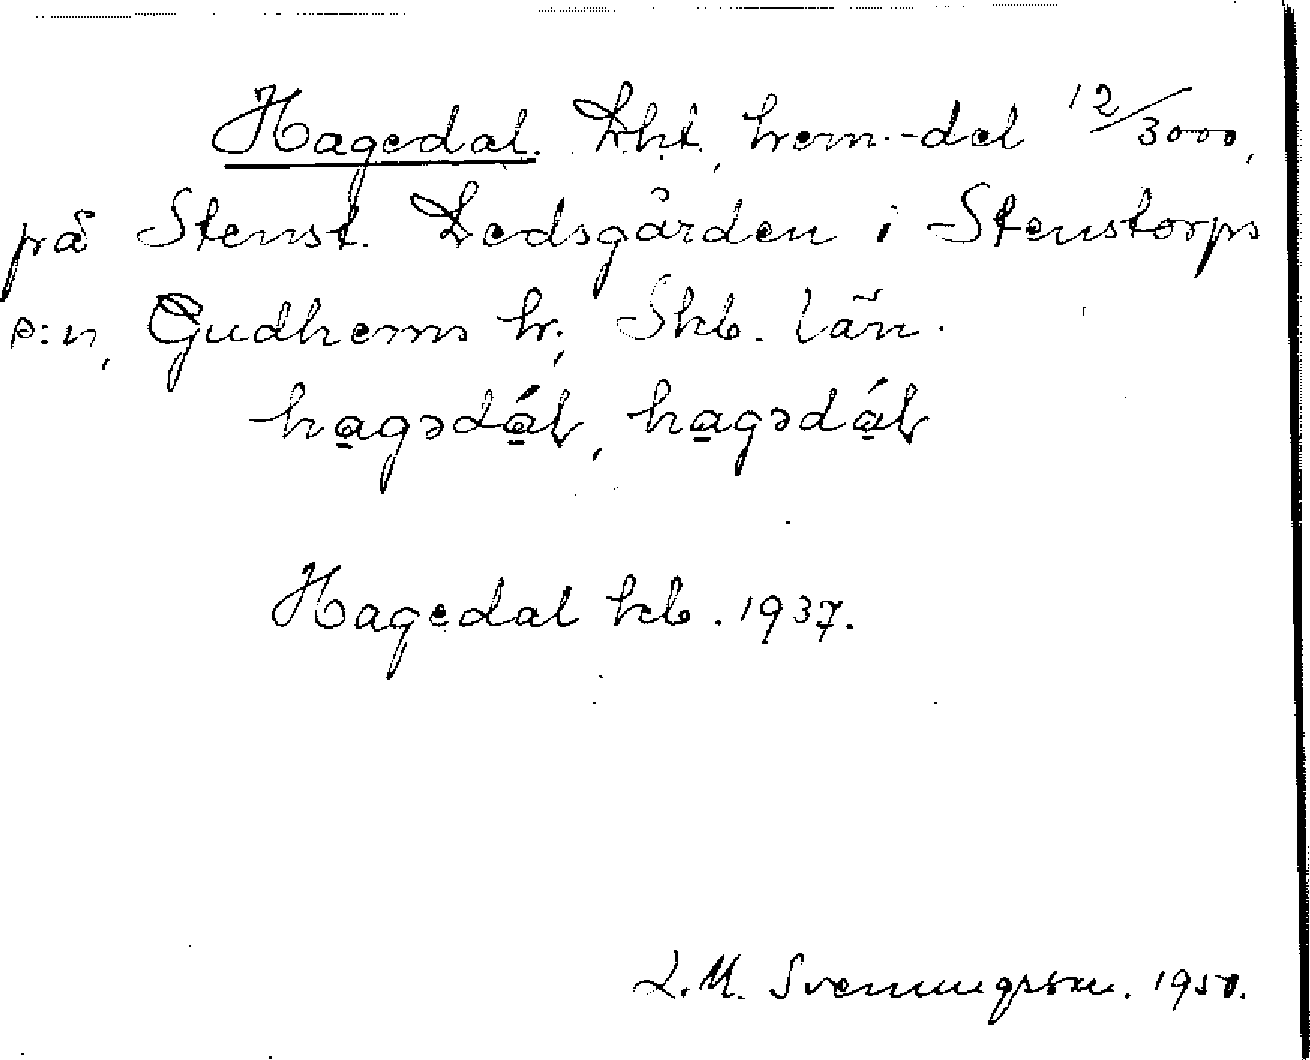 Hagedal. Lht, hem.-del 12/3000,
på Stenst. Dedsgården i Stenstorps
s:n, Gudhems hr, Skb. län.
hagədál, hagədál
Hagedal kb. 1937.
L.M. Svenungsson. 1950.